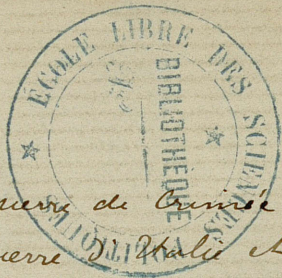 ÉCOLE LIBRE DES SCIENCES POLITIQUES
BIBLIOTHÈQUE
guerre de Crimée
guerre d'Italie et